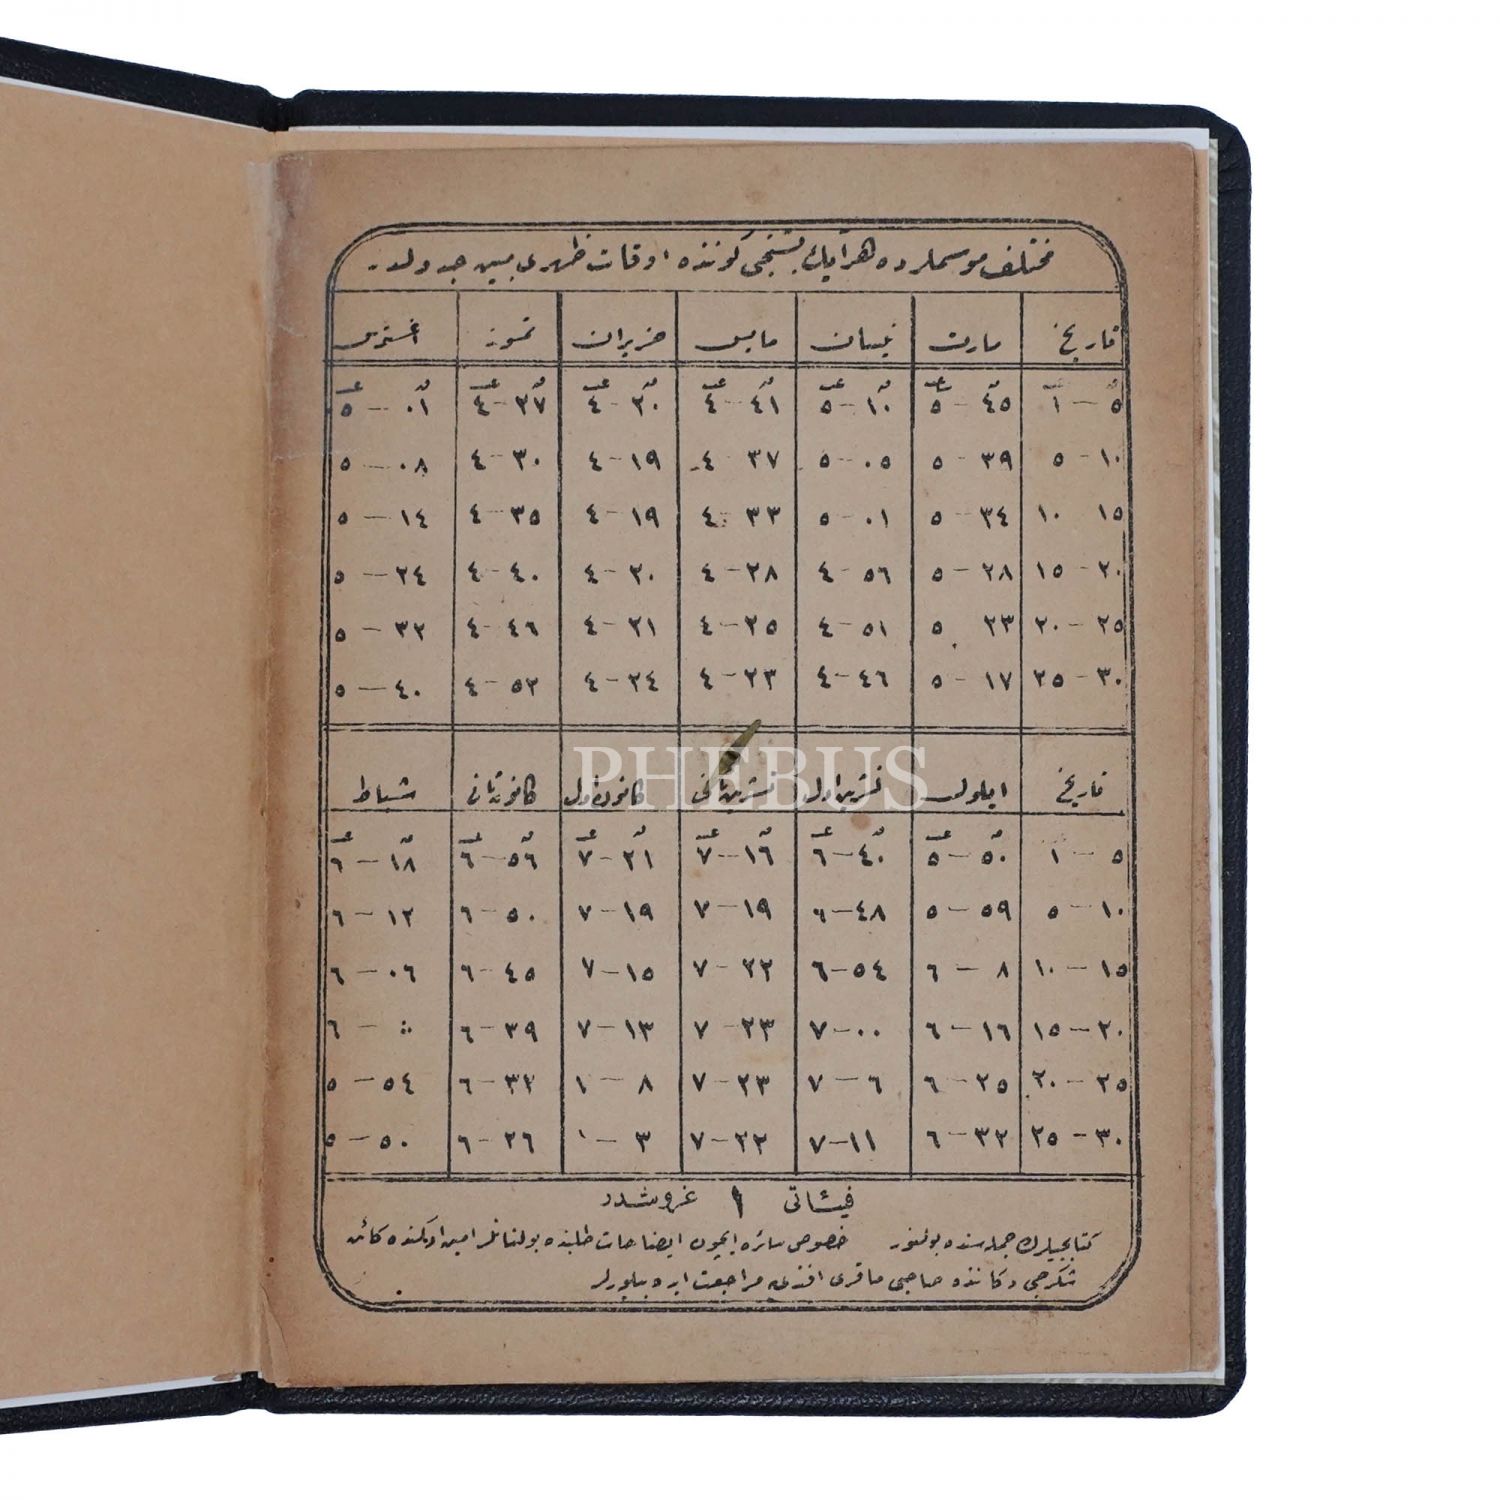 مختلف موسملرده هر آيك بشنجى كوننده اوقات ظهرى مبين جدولدر
تاريخ مارت نيسان مايس حزيران تموز اغستوس
٥ — ١ ٤٥ — ٥ ١٠ — ٥ ٤١ — ٤ ٢٠ — ٤ ٢٧ — ٤ ٠١ — ٥
١٠ — ٥ ٣٩ — ٥ ٠٥ — ٥ ٣٧ — ٤ ١٩ — ٤ ٣٠ — ٤ ٠٨ — ٥
١٥ ١٠ ٣٤ — ٥ ٠١ — ٥ ٣٣ — ٤ ١٩ — ٤ ٣٥ — ٤ ١٤ — ٥
٢٠ — ١٥ ٢٨ — ٥ ٥٦ — ٤ ٢٨ — ٤ ٢٠ — ٤ ٤٠ — ٤ ٢٤ — ٥
٢٥ — ٢٠ ٢٣ ٥ ٥١ — ٤ ٢٥ — ٤ ٢١ — ٤ ٤٦ — ٤ ٣٢ — ٥
٣٠ — ٢٥ ١٧ — ٥ ٤٦ — ٤ ٢٣ — ٤ ٢٤ — ٤ ٥٢ — ٤ ٤٠ — ٥
PHEBUS
تاريخ ايلول تشرين اول تشرين ثانى كانون اول كانون ثانى شباط
٥ — ١ ٥٠ — ٥ ٤٠ — ٦ ١٦ — ٧ ٢١ — ٧ ٥٦ — ٦ ١٨ — ٦
١٠ — ٥ ٥٩ — ٥ ٤٨ — ٦ ١٩ — ٧ ١٩ — ٧ ٥٠ — ٦ ١٢ — ٦
١٥ — ١٠ ٨ — ٦ ٥٤ — ٦ ٢٢ — ٧ ١٥ — ٧ ٤٥ — ٦ ٠٦ — ٦
٢٠ — ١٥ ١٦ — ٦ ٠٠ — ٧ ٢٣ — ٧ ١٣ — ٧ ٣٩ — ٦ ٠٠ — ٦
٢٥ — ٢٠ ٢٥ — ٦ ٦ — ٧ ٢٣ — ٧ ٨ — ١ ٣٢ — ٦ ٥٤ — ٥
٣٠ — ٢٥ ٣٢ — ٦ ١١ — ٧ ٢٢ — ٧ ٣ — ١ ٢٦ — ٦ ٥٠ — ٥
فيئاتى ١ غروشدر
كتابجيلرك جمله سنده بولنور خصوص سائره ايچون ايضاحات طلبنده بولنانلر امين اوكنده كائن
شكرجى دكاننده صاحبى افندى مراجعت ايده بيلورلر